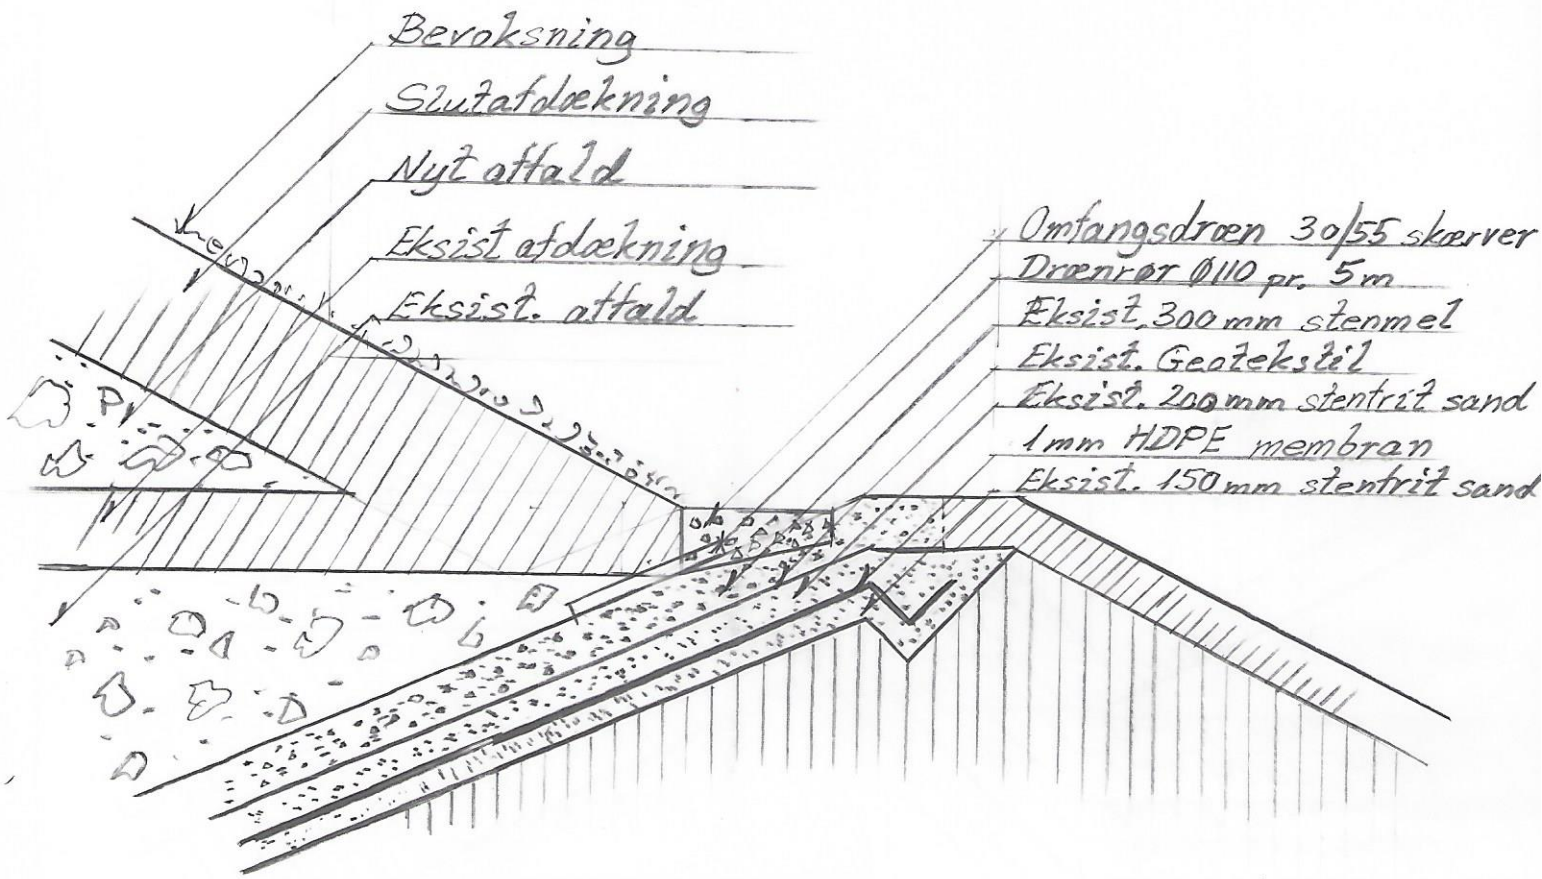 Bevoksning
Slutafdækning
Nyt affald
Eksist afdækning
Eksist. affald
Omfangsdræn 30/55 skærver
Drænrør Ø110 pr. 5m
Eksist. 300mm stenmel
Eksist. Geotekstil
Eksist. 200mm stenfrit sand
1mm HDPE membran
Eksist. 150mm stenfrit sand